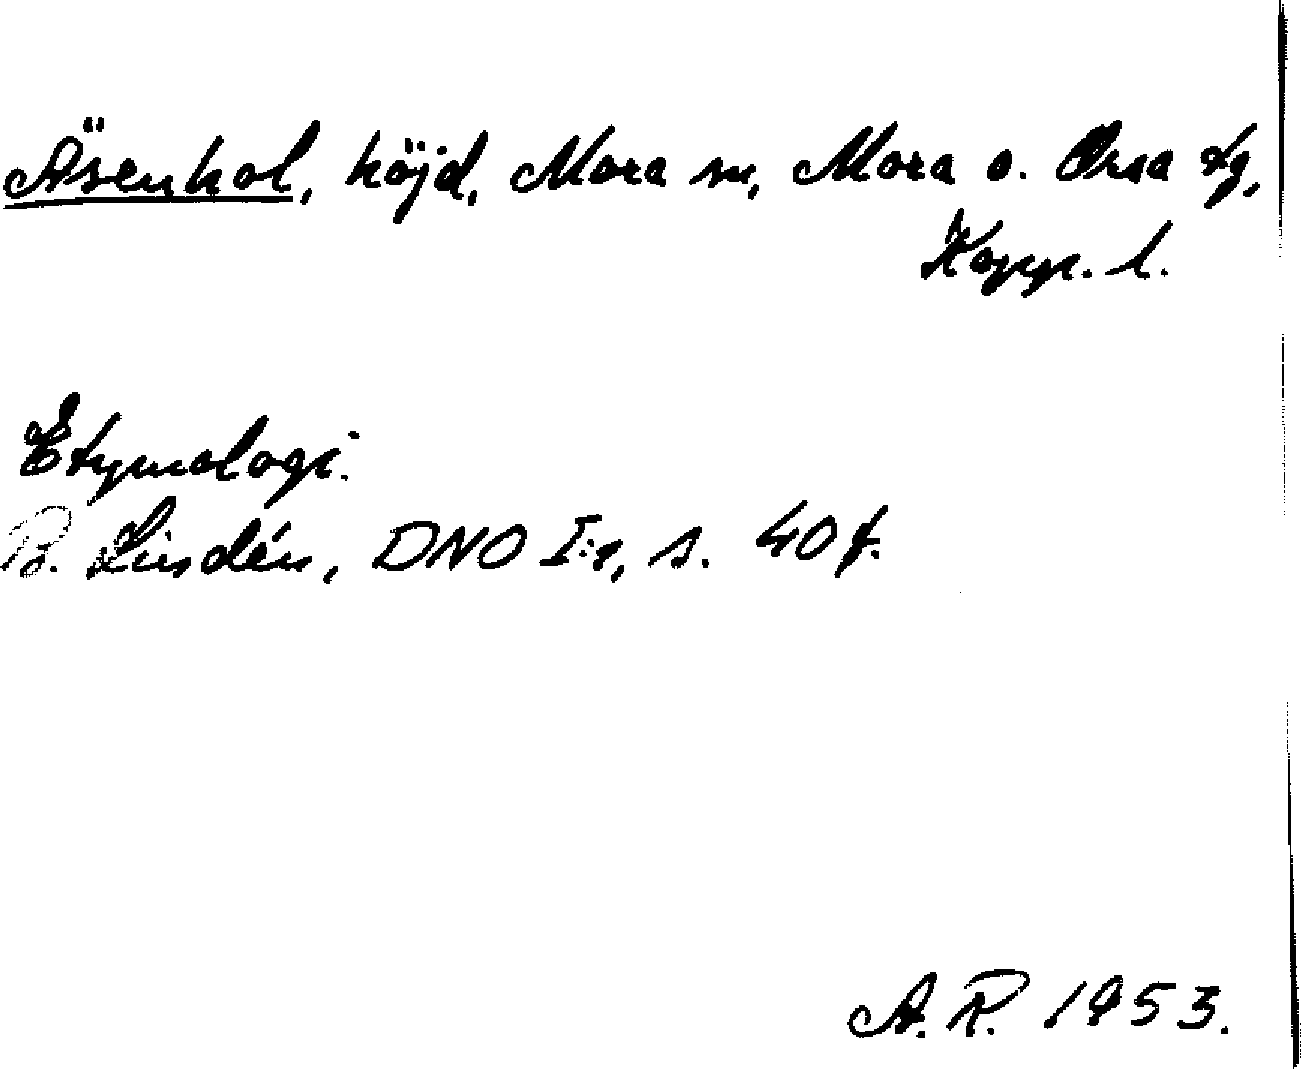 Äsenhol, höjd, Mora sn, Mora o. Orsa tg,
Kopp. l.
Etymologi.
B. Lindén, DNO I:1, s. 40 f.
A. R. 1953.